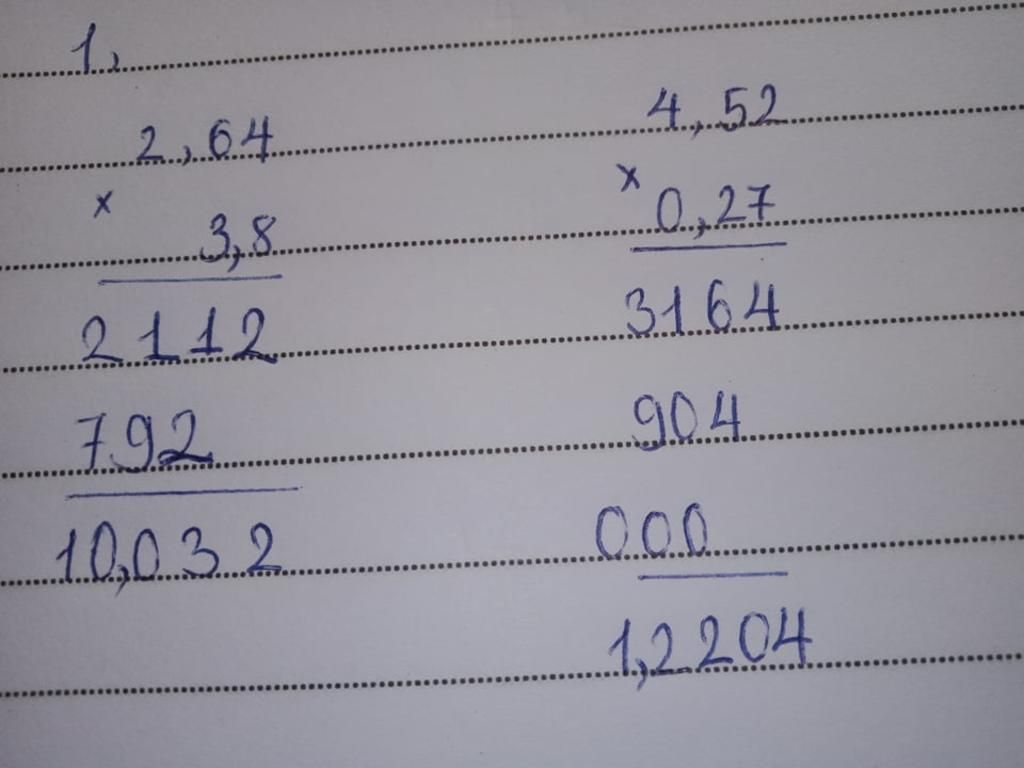 1,
2,64
x
3,8
2112
792
10,032
4,52
x
0,27
3164
904
000
1,2204